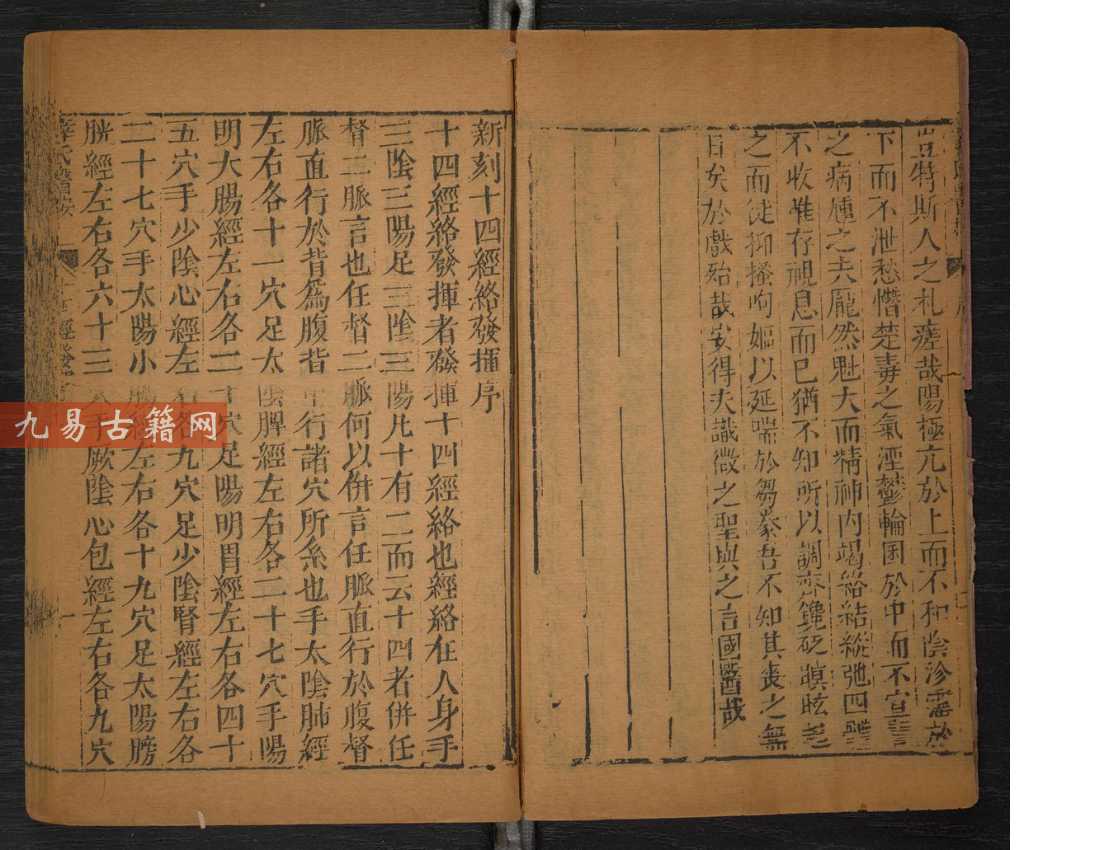 豈特斯人之札瘥哉陽極亢於上而不和陰沴
下而不泄愁憯楚毒之氣湮鬱輪囷於中而不宣
之病尰之夫龐然魁大而精神内竭絡結縱弛四體
不收惟存視息而已猶不知所以調齊鑱砭瞑眩
之而徒抑搔呴嫗以延喘於芻豢吾不知其喪之無
日矣於戲殆哉安得夫識微之聖與之言國醫哉
新刻十四經絡發揮序
十四經絡發揮者發揮十四經絡也經絡在人身手
三陰三陽足三陰三陽凡十有二而云十四者併任
督二脈言也任督二脈何以併言任脈直行於腹督
脈直行於背爲腹背中行諸穴所系也手太陰肺經
左右各十一穴足太陰脾經左右各二十七穴手陽
明大腸經左右各二十穴足陽明胃經左右各四十
五穴手少陰心經左右各九穴足少陰腎經左右各
二十七穴手太陽小腸經左右各十九穴足太陽膀
胱經左右各六十三穴手厥陰心包經左右各九穴
薛氏醫按
一
九易古籍网